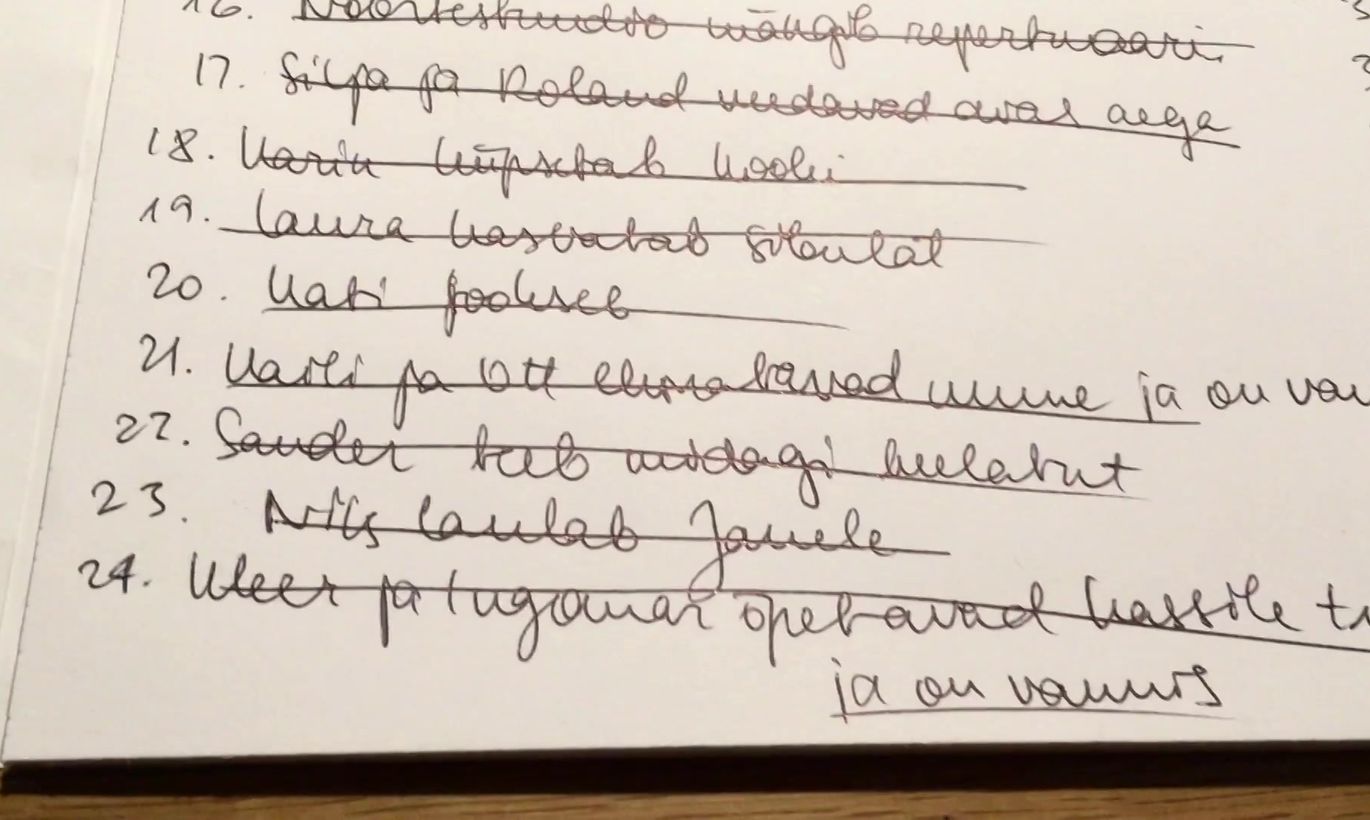 16. Noortestuudio mängib repertuaari
17. Silja ja Roland veedavad avas aega
18. Karin küpsetab kooki
19. Laura kasvatab sibulat
20. Kati jookseb
21. Karli ja Ott eksma ja on
22. Sander teeb midagi keelatut
23. Nils laulab Janele
24. Kleer ja Ingomar õpetavad kassile
ja on vannis